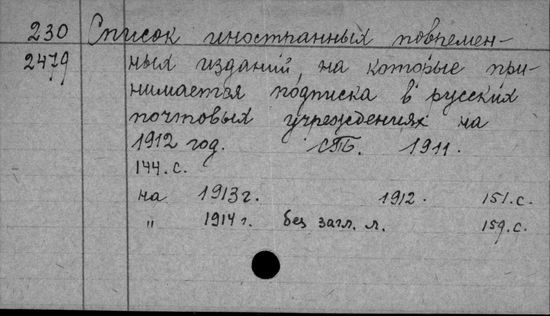 230 Список иностранных повремен-
2479 ных изданий, на которые при-
нимается подписка в русских
почтовых учреждениях на
1912 год. СПБ. 1911.
144. с.
на 1913 г. 1912. 151. с.
" 1914 г. без загл. л. 159. с.